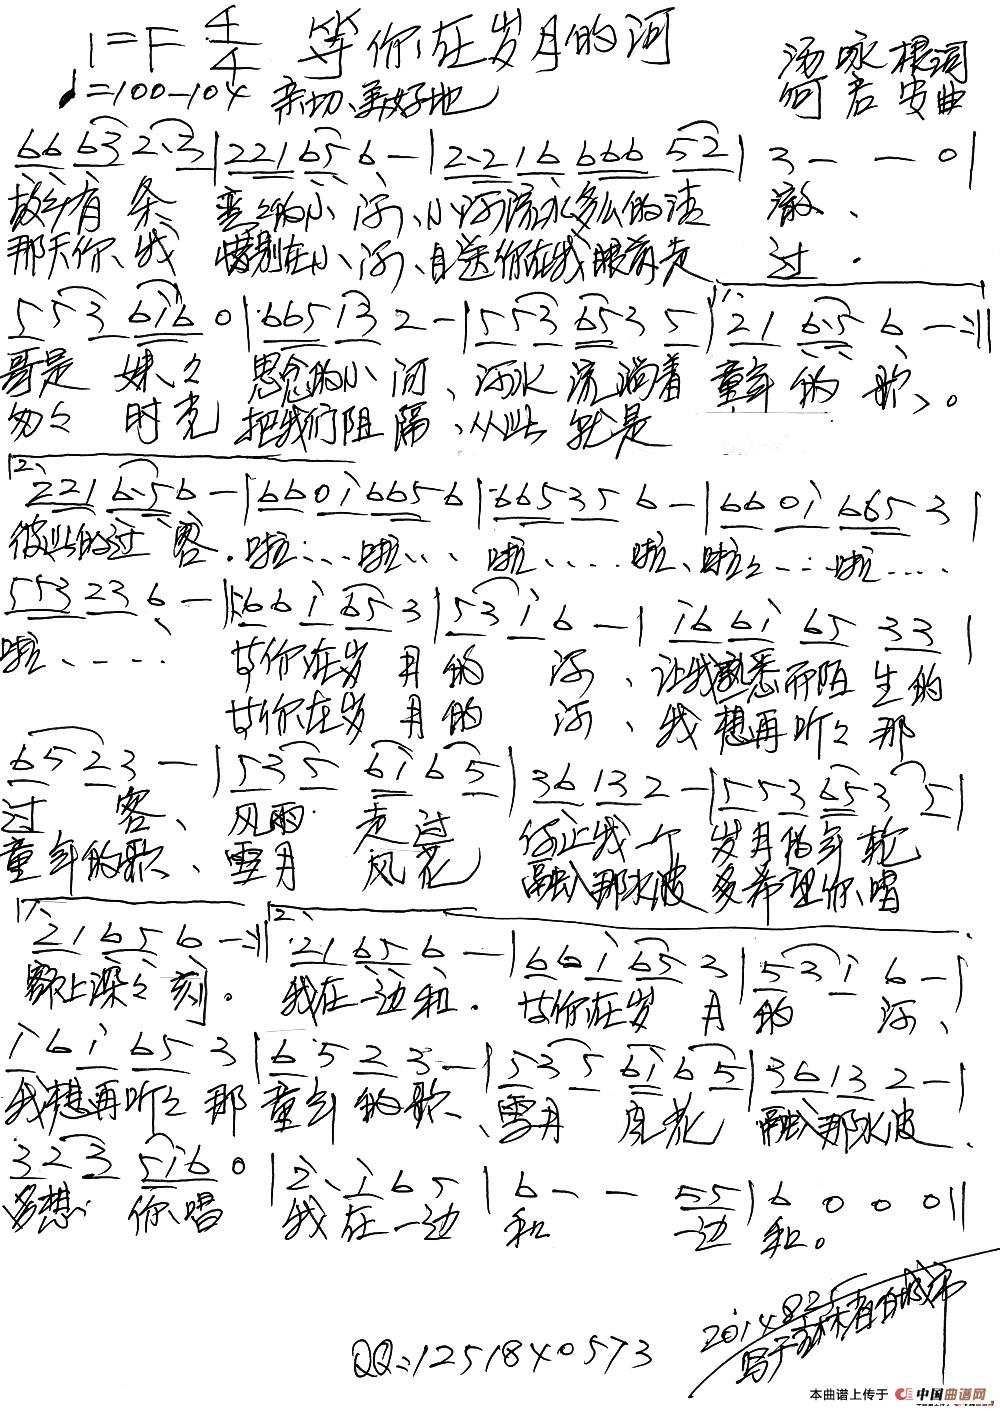 1=F 4/4 等你在岁月的河
♩=100-104 亲切、美好地
汤咏根词
何君安曲
66 63 2·3 | 221 65 6 - | 2·2 16 666 52 | 3 - - 0 |
故乡有条 弯々的小河、小河流水多么的清澈、
那天你、我 惜别在小河、目送你在我眼前走过.
5 53 6i6 0 | 665 13 2 - | 5 53 65 3 5 | 1、 21 6·5 6 - :||
哥是妹々 思念的小河、河水流淌着童年的歌、。
匆々时光 把我们阻隔、从此就是
2、 221 6·5 6 - | 66 0i 665 6 | 665 35 6 - | 66 0i 665 3 |
彼此的过客.啦……啦… 啦……啦、啦々…啦….
553 23 6 - | 66 i 65 3 | 53 i 6 - | i6 6i 65 33 |
啦、…. 等你在岁月的河、让我熟悉而陌生的
等你在岁月的河、我想再听々那
65 23 - | 535 6i 65 | 36 13 2 - | 5 53 65 3 5 |
过客、风雨走过 你让我一个岁月的年轮
童年的歌、雪月风花 融入那水波 多希望你唱
1、 21 65 6 - :|| 2、 21 65 6 - | 66 i 65 3 | 53 i 6 - |
额上深々刻。 我在一边和. 等你在岁月的河、
i 6 i 65 3 | 6 5 2 3 - | 53 5 6i 65 | 36 13 2 - |
我想再听々那童年的歌、雪月风花 融入那水波.
3 2 3 5i6 0 | 2 i 6 5 | 6 - - 55 | 6 0 0 0 ||
多想你、唱 我在一边 和 一边和。
2014.8.25
QQ:1251840573
本曲谱上传于 中国曲谱网